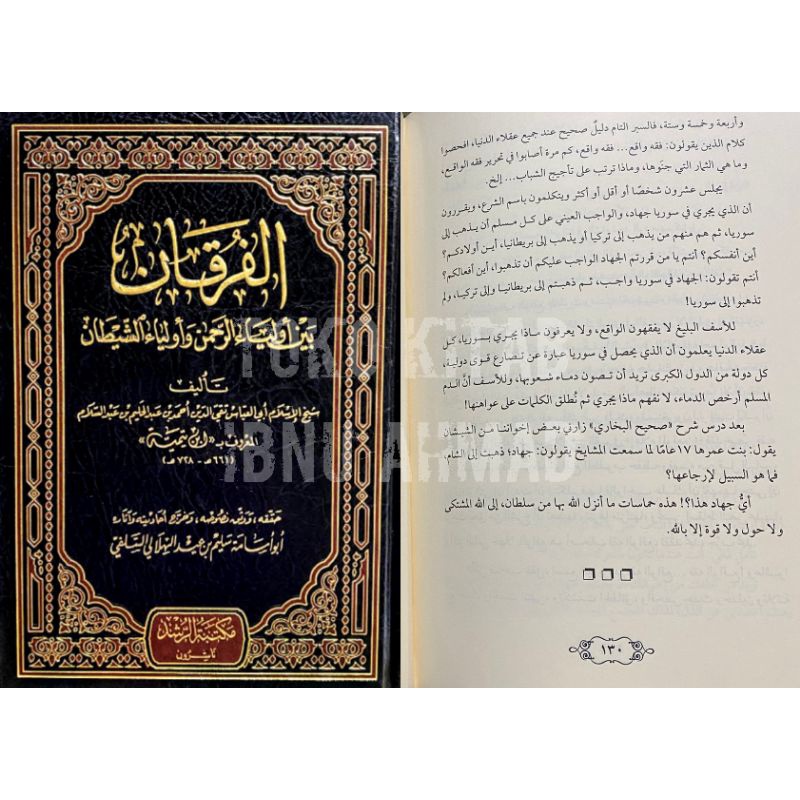 الفرقان
بين أولياء الرحمن وأولياء الشيطان
تأليف
شيخ الإسلام أبي العباس تقي الدين أحمد بن عبد الحليم بن عبد السلام
المعروف بـ «ابن تيمية»
(٦٦١هـ - ٧٢٨هـ)
حققه، ووثق نصوصه، وخرج أحاديثه وآثاره
أبو أسامة سليم بن عيد الهلالي السلفي
مكتبة الرشد
ناشرون
TOKO KITAB
IBNU AHMAD
وأربعة وخمسة وستة، فالسبر التام دليلٌ صحيح عند جميع عقلاء الدنيا، افحصوا
كلام الذين يقولون: فقه واقع... فقه واقع، كم مرة أصابوا في تحرير فقه الواقع،
وما هي الثمار التي جنَوها، وماذا ترتب على تأجيج الشباب... إلخ.
يجلس عشرون شخصًا أو أقل أو أكثر ويتكلمون باسم الشرع، ويقررون
أن الذي يجري في سوريا جهاد، والواجب العيني على كل مسلم أن يذهب إلى
سوريا، ثم هم منهم من يذهب إلى تركيا أو يذهب إلى بريطانيا، أين أولادكم؟
أين أنفسكم؟ أنتم يا من قررتم الجهاد الواجب عليكم أن تذهبوا، أين أفعالكم؟
أنتم تقولون: الجهاد في سوريا واجب، ثم ذهبتم إلى بريطانيا وإلى تركيا، ولم
تذهبوا إلى سوريا!
للأسف البليغ لا يفقهون الواقع، ولا يعرفون ماذا يجري بسوريا، كل
عقلاء الدنيا يعلمون أن الذي يحصل في سوريا عبارة عن تصارع قوى دولية،
كل دولة من الدول الكبرى تريد أن تصون دماء شعوبها، وللأسف أنَّ الدم
المسلم أرخص الدماء، لا نفهم ماذا يجري ثم نُطلق الكلمات على عواهنها!
بعد درس شرح «صحيح البخاري» زارني بعض إخواننا من الشيشان
يقول: بنت عمرها ١٧ عامًا لما سمعت المشايخ يقولون: جهاد؛ ذهبت إلى الشام،
فما هو السبيل لإرجاعها؟
أيُّ جهاد هذا؟! هذه حماسات ما أنزل الله بها من سلطان، إلى الله المشتكى
ولا حول ولا قوة إلا بالله.
١٣٠